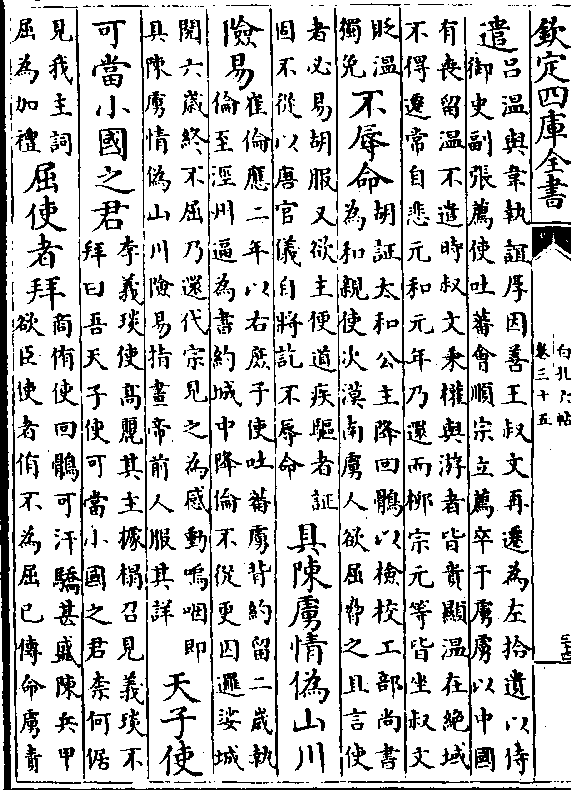 欽定四庫全書
白孔六帖
卷三十五
遣
呂溫與韋執誼厚因善王叔文再遷為左拾遺以侍
御史副張薦使吐蕃會順宗立薦卒于虜虜以中國
有喪留溫不遣時叔文秉權與游者皆貴顯溫在絕域
不得遷常自悲元和元年乃還而柳宗元等皆坐叔文
貶溫
獨免
不辱命
胡証太和公主降回鶻以檢校工部尚書
為和親使次漠南虜人欲屈脅之且言使
者必易胡服又欲主便道疾驅者証
固不從以唐官儀自將訖不辱命
具陳虜情偽山川
險易
崔倫應二年以右庶子使吐蕃虜背約留二歲執
倫至涇州逼為書約城中降倫不從更囚邏娑城
閱六歲終不屈乃還代宗見之為感動嗚咽即
具陳虜情偽山川險易指畫帝前人服其詳
天子使
可當小國之君
李義琰使高麗其主據榻召見義琰不
拜曰吾天子使可當小國之君柰何倨
見我主詞
屈為加禮
屈使者拜
商侑使回鶻可汗驕甚盛陳兵甲
欲臣使者侑不為屈已傳命虜責